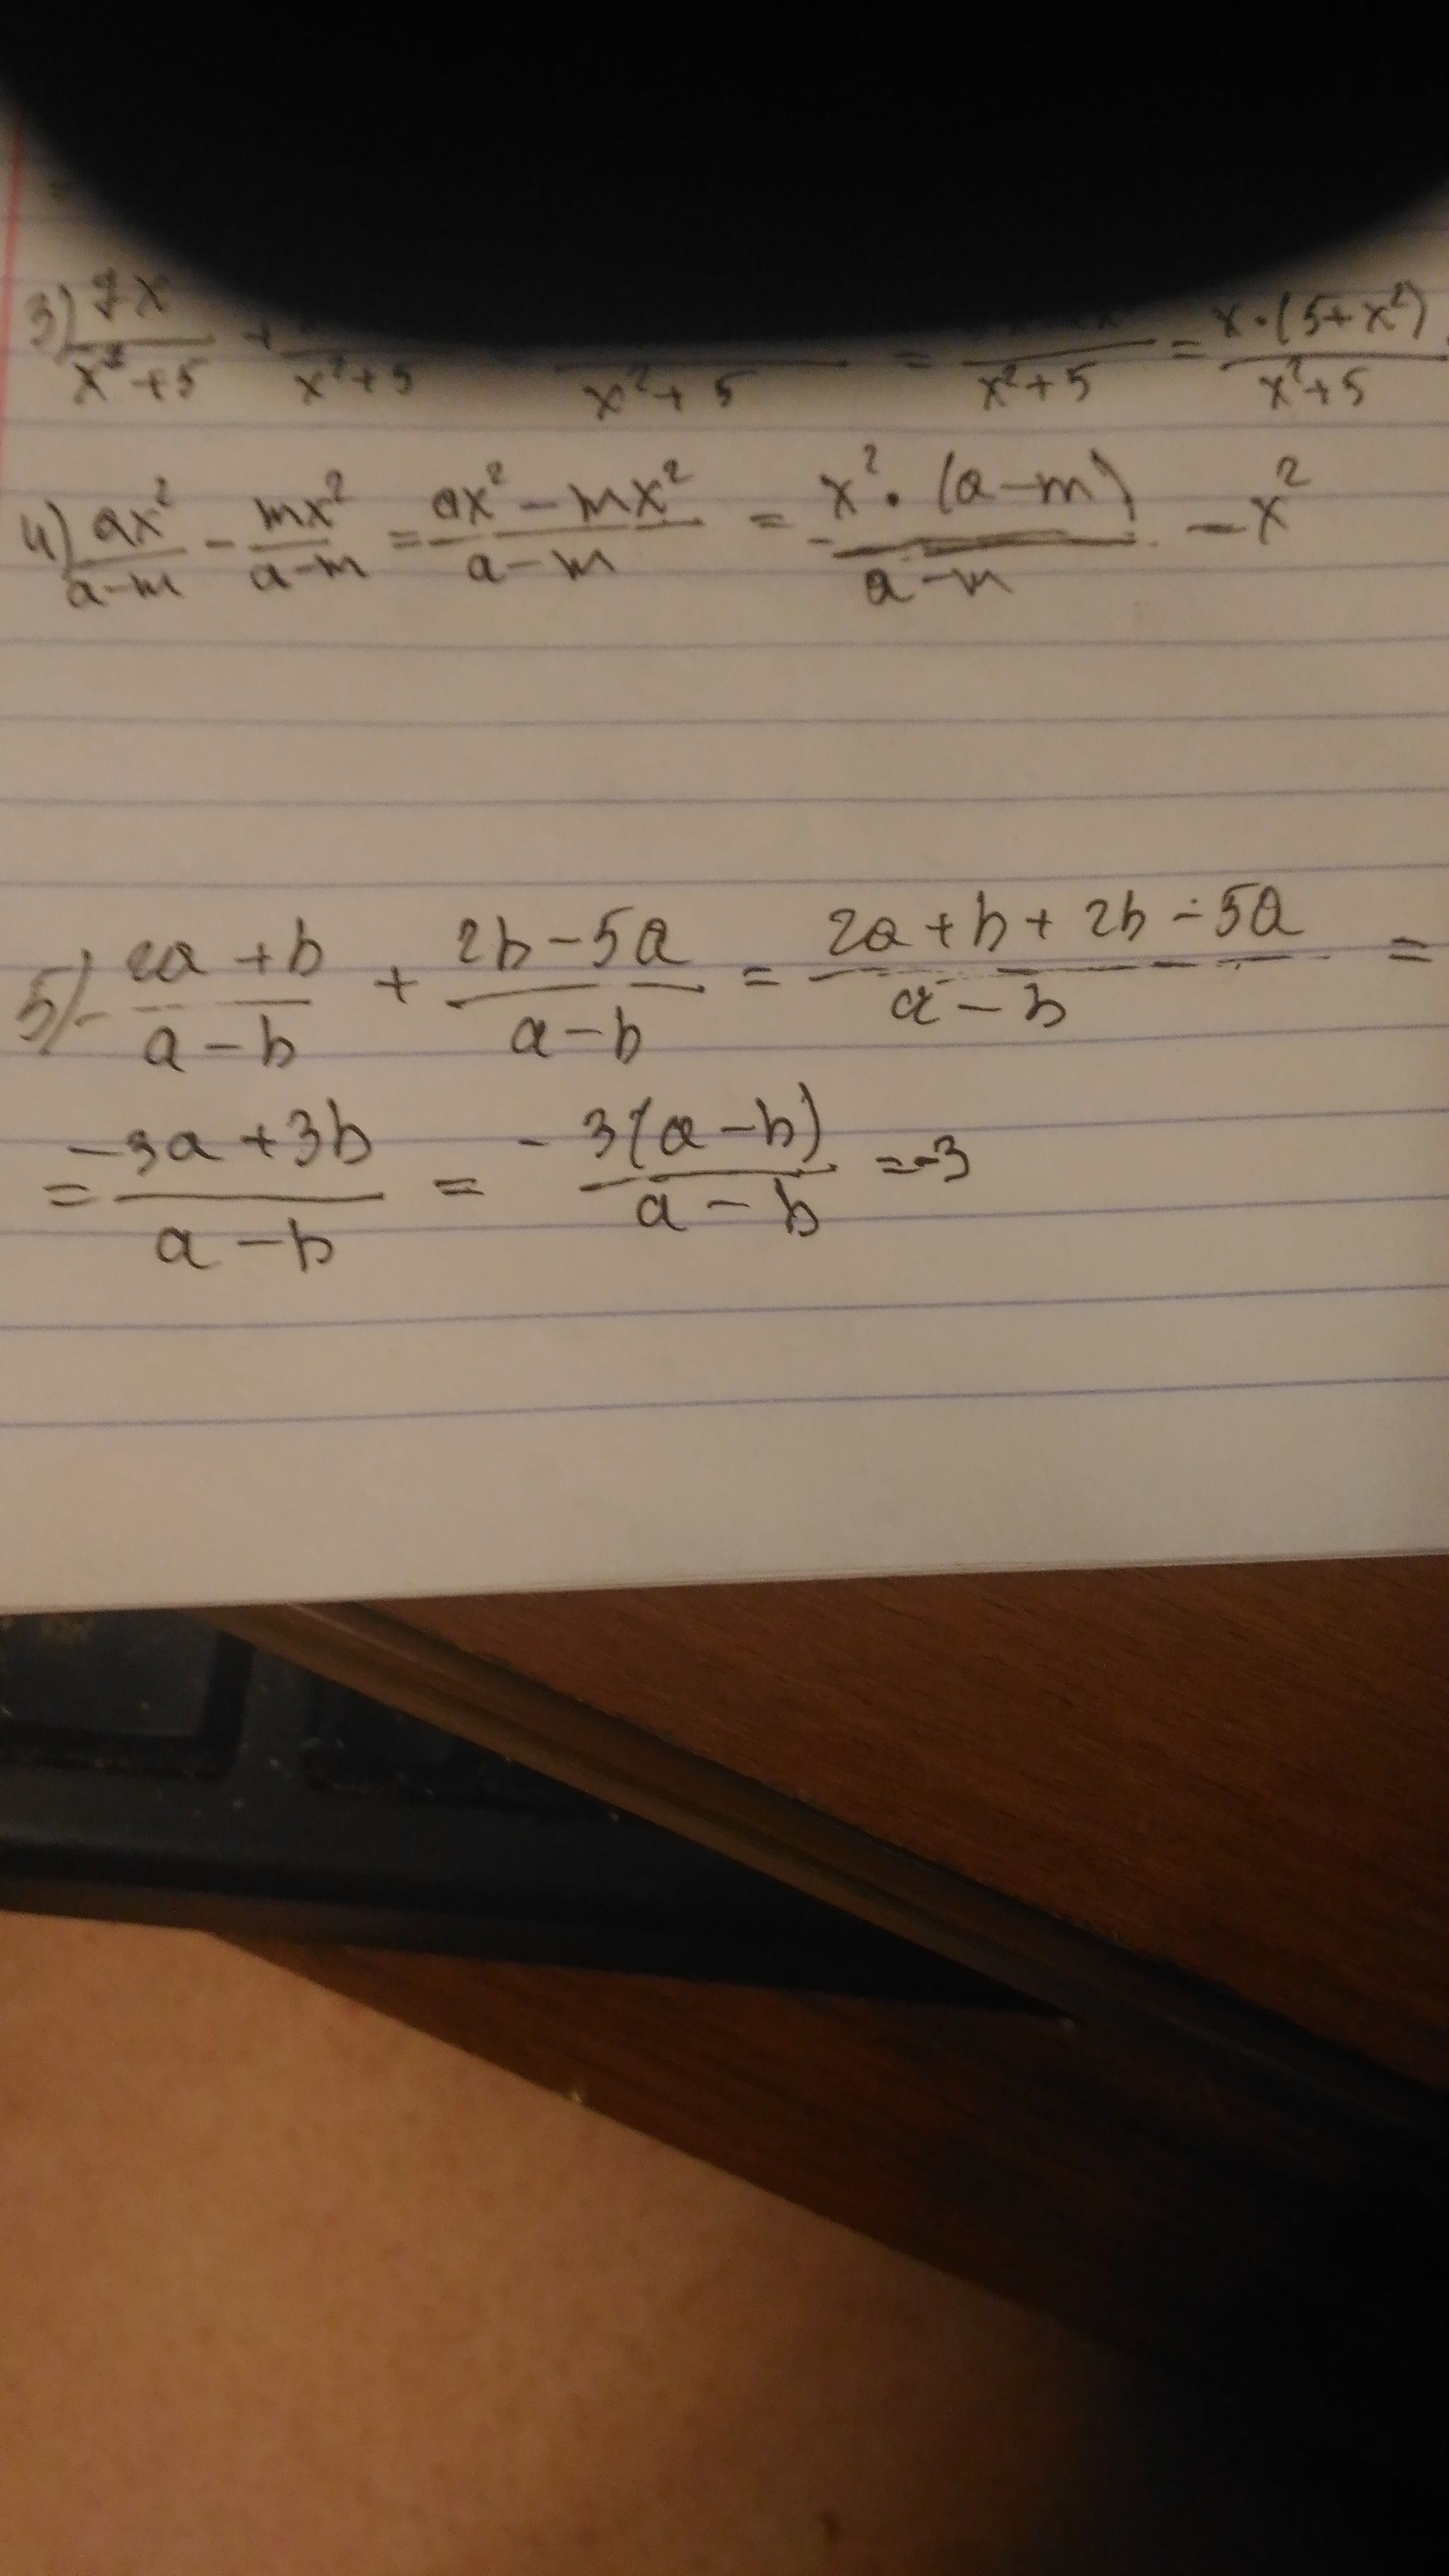 3) 7x/(x²+5) + /(x²+5) /(x²+5) = /(x²+5) = x·(5+x²)/(x²+5)
4) ax²/(a-m) - mx²/(a-m) = (ax²-mx²)/(a-m) = x²·(a-m)/(a-m) - x²
5) (2a+b)/(a-b) + (2b-5a)/(a-b) = (2a+b+2b-5a)/(a-b) =
= (-3a+3b)/(a-b) = -3(a-b)/(a-b) = -3